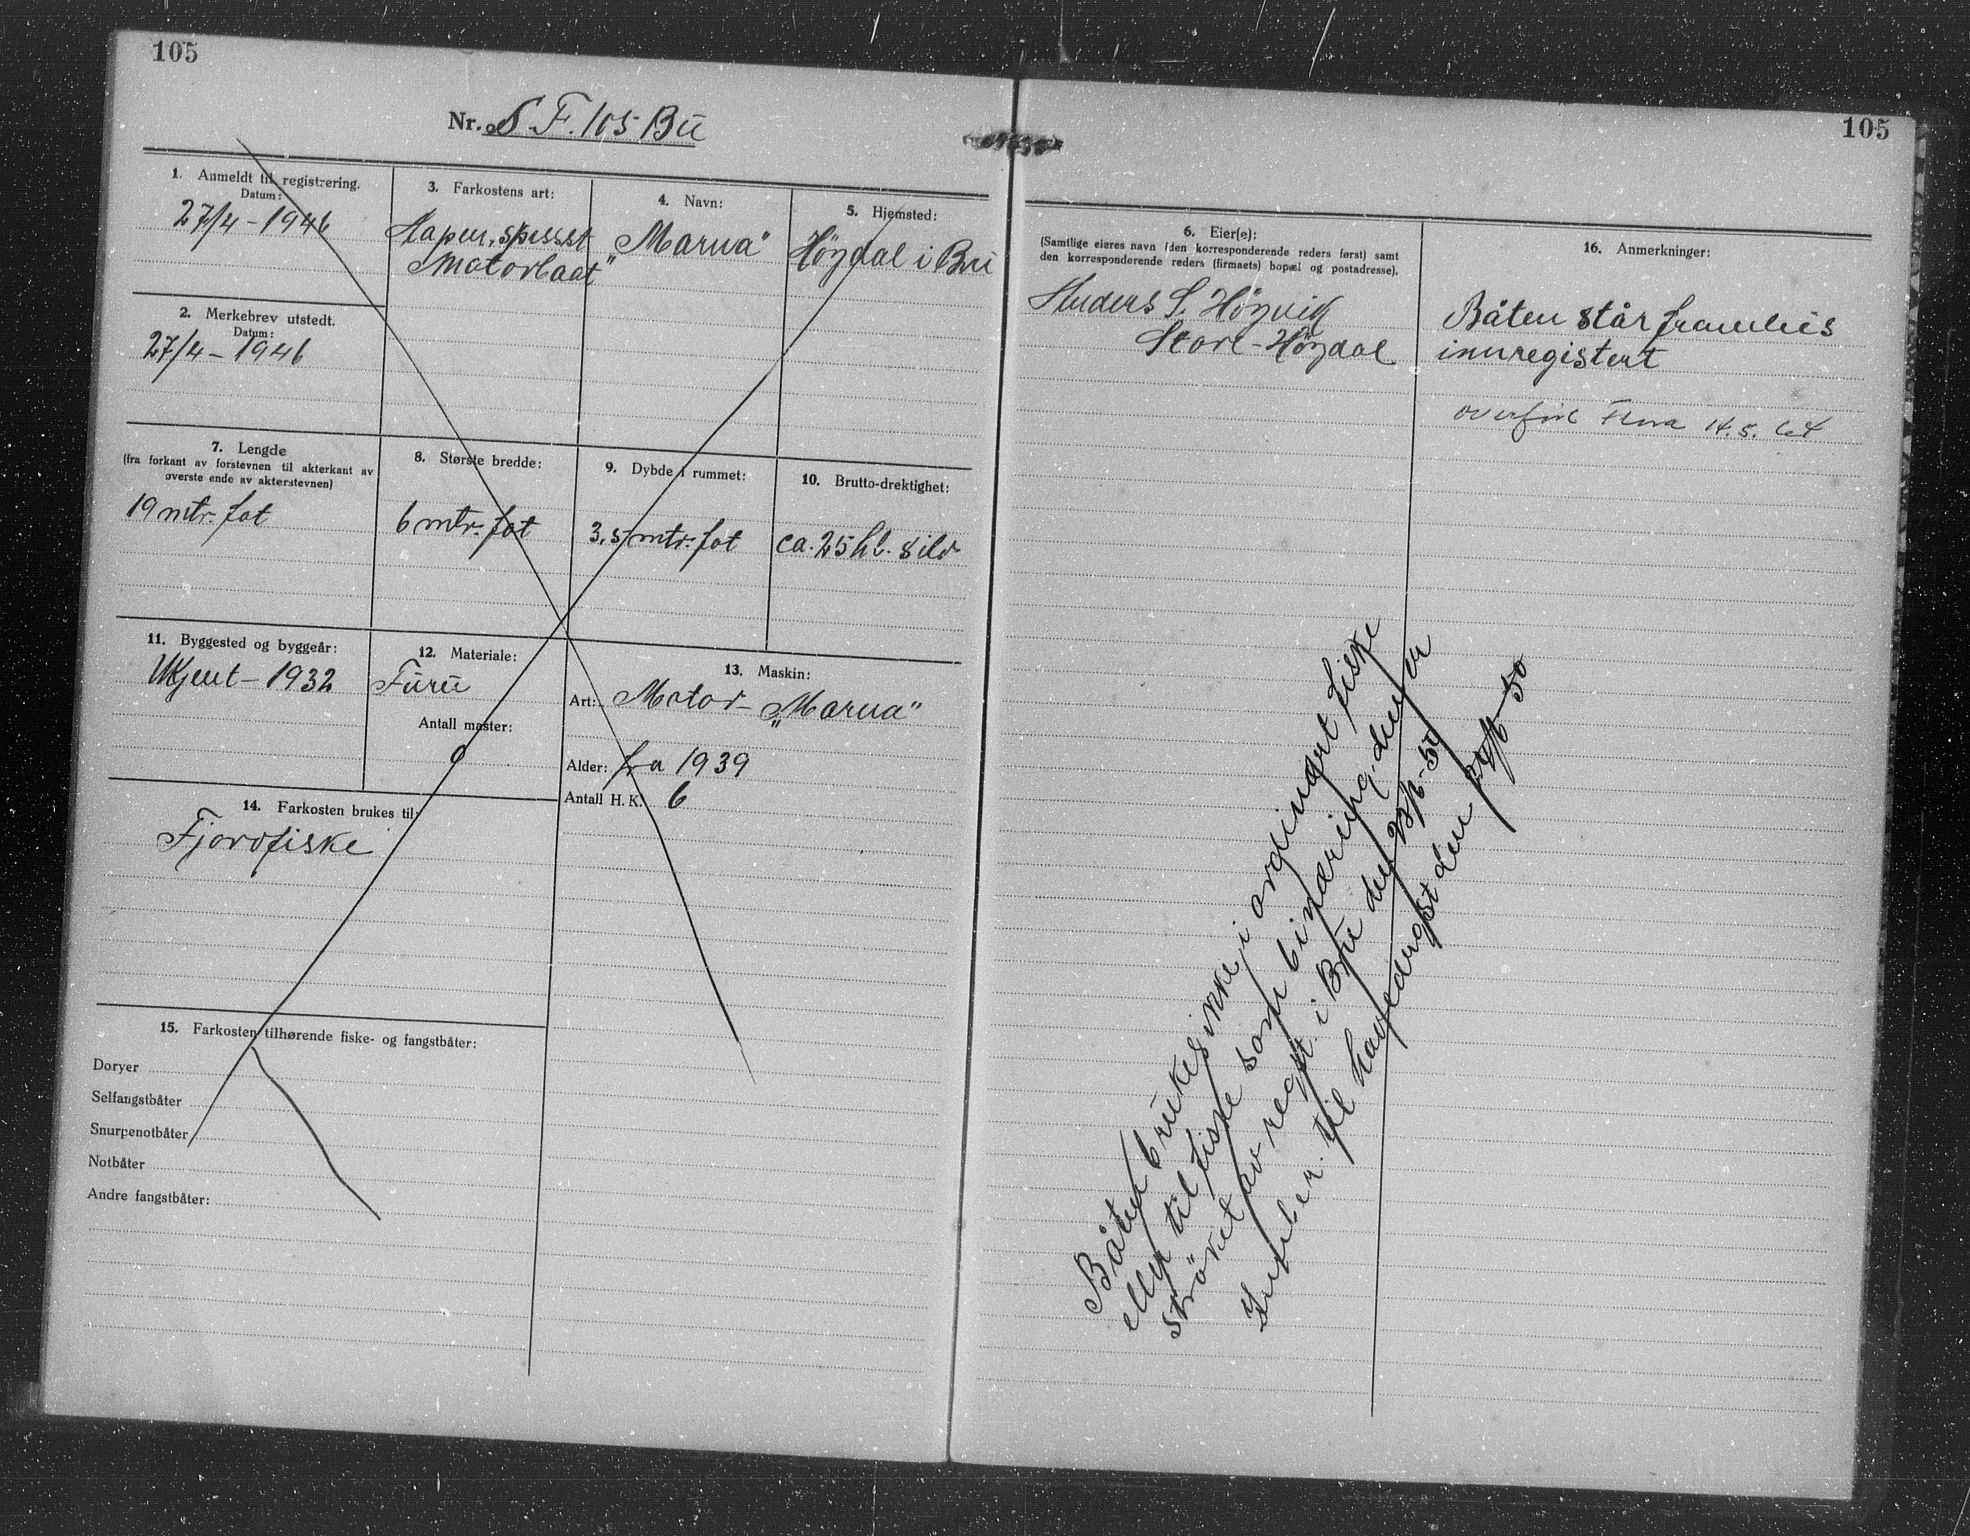 105
Nr. S. F. 105 Bu
1. Anmeldt til registrering.
Datum:
27/4 - 1946
2. Merkebrev utstedt.
Datum:
27/4 - 1946
3. Farkostens art:
Aapen, spissst
Motorbaat"
4. Navn:
„Marna"
5. Hjemsted:
Høydal i Bru
7. Lengde
(fra forkant av forstevnen til akterkant av
øverste ende av akterstevnen)
19 mtr. fot
8. Største bredde:
6 mtr. fot
9. Dybde i rummet:
3,5 mtr. fot
10. Brutto-drektighet:
ca. 25 hl. sild
11. Byggested og byggeår:
Ukjent - 1932
12. Materiale:
Furu
Antall master:
0
13. Maskin:
Art: Motor - „Marna"
Alder: fra 1939
Antall H. K. 6
14. Farkosten brukes til:
Fjordfiske
15. Farkosten tilhørende fiske- og fangstbåter:
Doryer
Selfangstbåter
Snurpenotbåter
Notbåter
Andre fangstbåter:
105
6. Eier(e):
(Samtlige eieres navn (den korresponderende reders først) samt
den korresponderende reders (firmaets) bopæl og postadresse).
Anders S. Høyvik
Store-Høydal
16. Anmerkninger:
Båten står framleis
innregistert
overført Flora 14.5.64
Båten brukes ikke i ordinært fiske
eller til fiske som binæring, den er
strøket av regst. i Bru den
til den